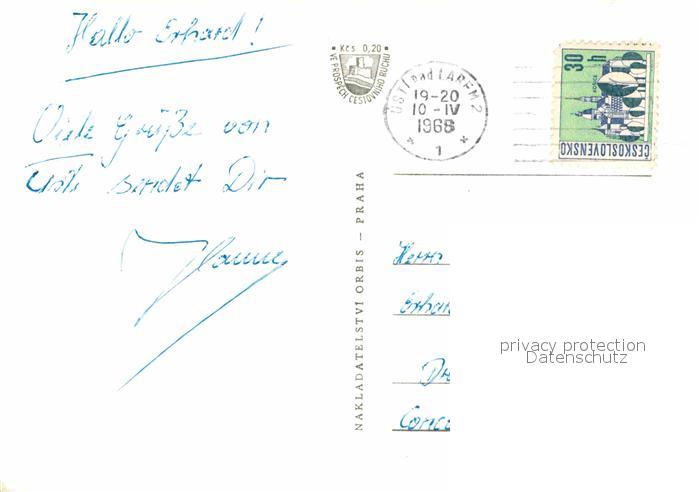 Hallo Erhard!
Viele Grüße von
Ústí sendet Dir
Kčs 0,20
VE PROSPĚCH CESTOVNÍHO RUCHU
ÚSTÍ nad LABEM 2
19-20
10-IV
1968
1
30 h
ČESKOSLOVENSKO
NAKLADATELSTVÍ ORBIS – PRAHA
Herrn
Erhar
Dr
privacy protection
Datenschutz